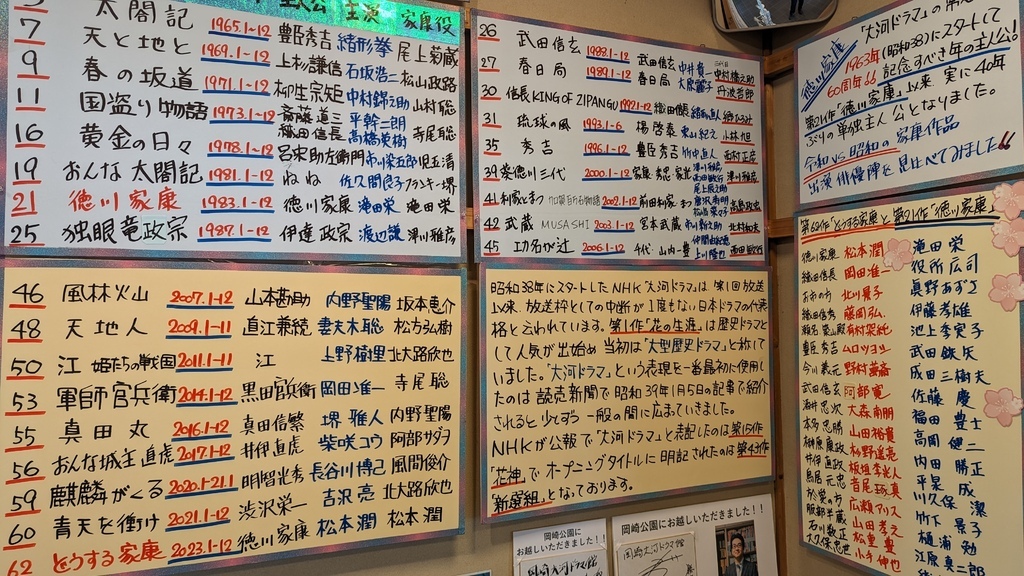 主演 家康役
太閤記 1965.1~12 豊臣秀吉 緒形拳 尾上菊蔵
7 天と地と 1969.1~12 上杉謙信 石坂浩二 松山政路
9 春の坂道 1971.1~12 柳生宗矩 中村錦之助 山村聡
11 国盗り物語 1973.1~12 斎藤道三 平幹二朗 織田信長 高橋英樹 寺尾聡
16 黄金の日々 1978.1~12 呂宋助左衛門 市川染五郎 児玉清
19 おんな太閤記 1981.1~12 ねね 佐久間良子 フランキー堺
21 徳川家康 1983.1~12 徳川家康 滝田栄 滝田栄
25 独眼竜政宗 1987.1~12 伊達政宗 渡辺謙 津川雅彦
26 武田信玄 1988.1~12 武田信玄 中井貴一 中村橋之助
27 春日局 1989.1~12 春日局 大原麗子 丹波哲郎
30 信長 KING OF ZIPANGU 1992.1~12 織田信長 緒形直人 郷ひろみ
31 琉球の風 1993.1~6 楊啓泰 東山紀之 小林旭
35 秀吉 1996.1~12 豊臣秀吉 竹中直人 西村正彦
39 葵徳川三代 2000.1~12 家康 秀忠 家光 津川雅彦
41 利家とまつ 加賀百万石物語 2002.1~12 前田利家 まつ 唐沢寿明 松嶋菜々子 高嶋政宏
42 武蔵 MUSASHI 2003.1~12 宮本武蔵 市川新之助 北村和夫
45 功名が辻 2006.1~12 千代 山内一豊 仲間由紀恵 上川隆也 西田敏行
46 風林火山 2007.1~12 山本勘助 内野聖陽 坂本恵介
48 天地人 2009.1~11 直江兼続 妻夫木聡 松方弘樹
50 江 姫たちの戦国 2011.1~11 江 上野樹里 北大路欣也
53 軍師官兵衛 2014.1~12 黒田官兵衛 岡田准一 寺尾聡
55 真田丸 2016.1~12 真田信繁 堺雅人 内野聖陽
56 おんな城主直虎 2017.1~12 井伊直虎 柴咲コウ 阿部サダヲ
59 麒麟がくる 2020.1~21.1 明智光秀 長谷川博己 風間俊介
60 青天を衝け 2021.1~12 渋沢栄一 吉沢亮 北大路欣也
62 どうする家康 2023.1~12 徳川家康 松本潤 松本潤
昭和38年にスタートしたNHK「大河ドラマ」は第1回放送
以来、放送枠としての中断が1度もない日本ドラマの代表
格と云われています。第1作「花の生涯」は歴史ドラマと
して人気が出始め当初は「大型歴史ドラマ」と称して
いました。「大河ドラマ」という表現を一番最初に使用し
たのは読売新聞で昭和39年1月5日の記事で紹介
されると少しずつ一般の間に広まっていきました。
NHKが公報で「大河ドラマ」と表記したのは第15作
「花神」でオープニングタイトルに明記されたのは第43作
「新選組」となっております。
徳川家康
「大河ドラマ」の
1963年(昭和38)にスタートして
60周年!!記念すべき年の主人公!
第21作「徳川家康」以来 実に40年
ぶりの単独主人公となりました。
令和 vs 昭和の家康作品
出演俳優陣を見比べてみました!!
第62作「どうする家康」と第21作「徳川家康」
徳川家康 松本潤 滝田栄
織田信長 岡田准一 役所広司
お市の方 北川景子 真野あずさ
織田信秀 藤岡弘、 伊藤孝雄
瀬名 築山殿 有村架純 池上季実子
豊臣秀吉 ムロツヨシ 武田鉄矢
今川義元 野村萬斎 成田三樹夫
武田信玄 阿部寛 佐藤慶
酒井忠次 大森南朋 福田豊土
本多忠勝 山田裕貴 高岡健二
榊原康政 杉野遥亮 内田勝正
井伊直政 板垣李光人 平泉成
鳥居元忠 音尾琢真 川久保潔
於愛の方 広瀬アリス 竹下景子
服部半蔵 山田孝之 樋浦勉
石川数正 松重豊 江原真二郎
大久保忠世 小手伸也
岡崎公園に
お越しいただきました!!
岡崎公園にお越しいただきました!!
岡崎大河ドラマ館